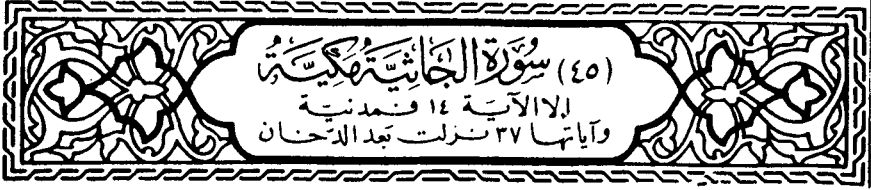 (٤٥) سُورَة الجَاثِيَة مَكِيَّة
إلا الآية ١٤ فمدنية
وآياتها ٣٧ نزلت بعد الدخان